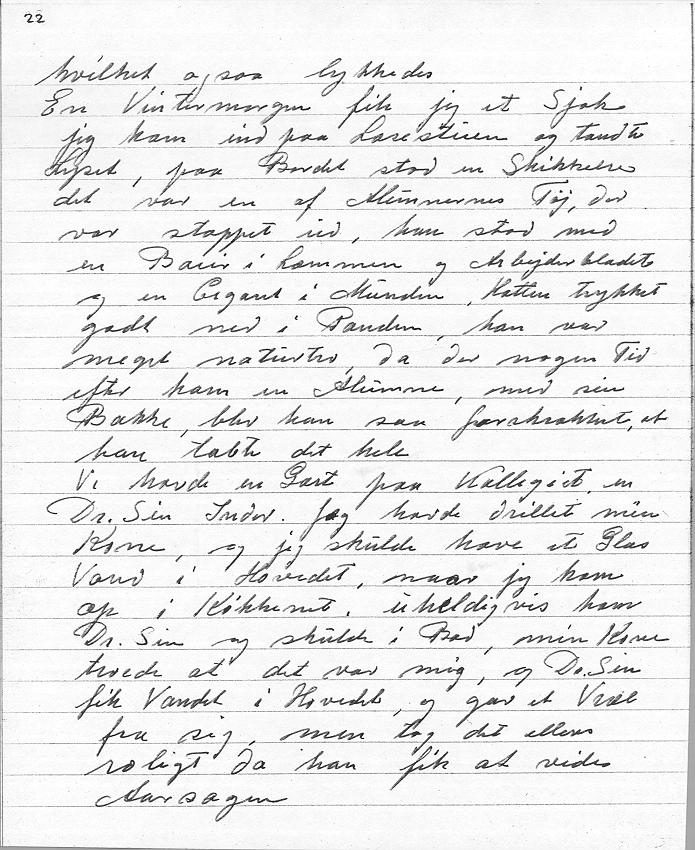 22
hvilket ogsaa lykkedes
En Vintermorgen fik jeg et Sjok
jeg kom ind paa Læsestuen og tændte
Lyset, paa Bordet stod en Skikkelse
det var en af Alumnernes Tøj, der
var stoppet ud, han stod med
en Baier i Lommen og Arbejderbladet
og en Cigaret i Munden, Hatten trykket
godt ned i Panden, han var
meget naturtro, da der nogen Tid
efter kom en Alumne, med sin
Bakke, blev han saa forskrækket, at
han tabte det hele
Vi havde en Gæst paa Kollegiet, en
Dr. Sin Inder. Jeg havde drillet min
Kone, og jeg skulde have et Glas
Vand i Hovedet, naar jeg kom
op i Køkkenet. uheldigvis kom
Dr. Sin og skulde i Bad, min Kone
troede at det var mig, og Dr. Sin
fik Vandet i Hovedet, og gav et Vræl
fra sig, men tog det ellers
roligt da han fik at vide
Aarsagen